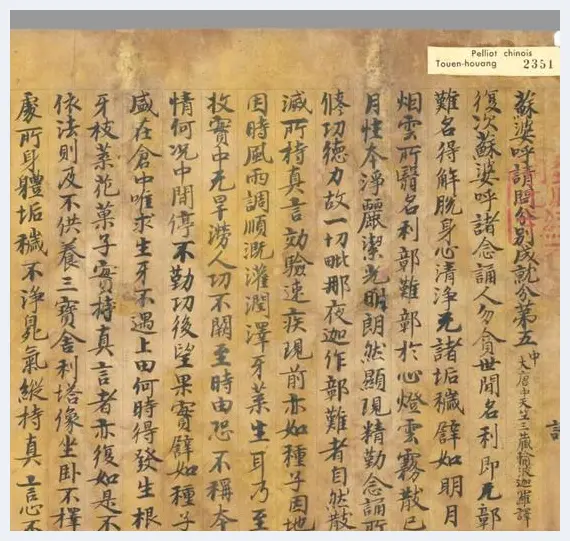 Pelliot chinois
Touen-houang 2351
蘇婆呼請問分別成就分第五 中 大唐中天竺三藏輸波迦羅譯
復次蘇婆呼諸念誦人勿貪世間名利即无鄣
難名得解脫身心清淨无諸垢穢譬如明月
烟雲所翳名利鄣難鄣於心燈雲霧散已
月性本淨麗潔光明朗然顯現精勤念誦所
修功德力故一切毗那夜迦作鄣難者自然散
滅所持真言効驗速疾現前亦如種子因地
因時風雨調順溉灌潤澤牙葉生耳乃至
枚實中无旱澇人功不闕至時由恐不稱本
情何況中閒停不勤功後望果實譬如種子
盛在倉中唯求生牙不遇上田何時得發生根
牙枝葉花菓子實持真言者亦復如是不
依法則及不供養三寶舍利塔像坐卧不擇
處所身體垢穢不淨臭氣縱持真言恐不